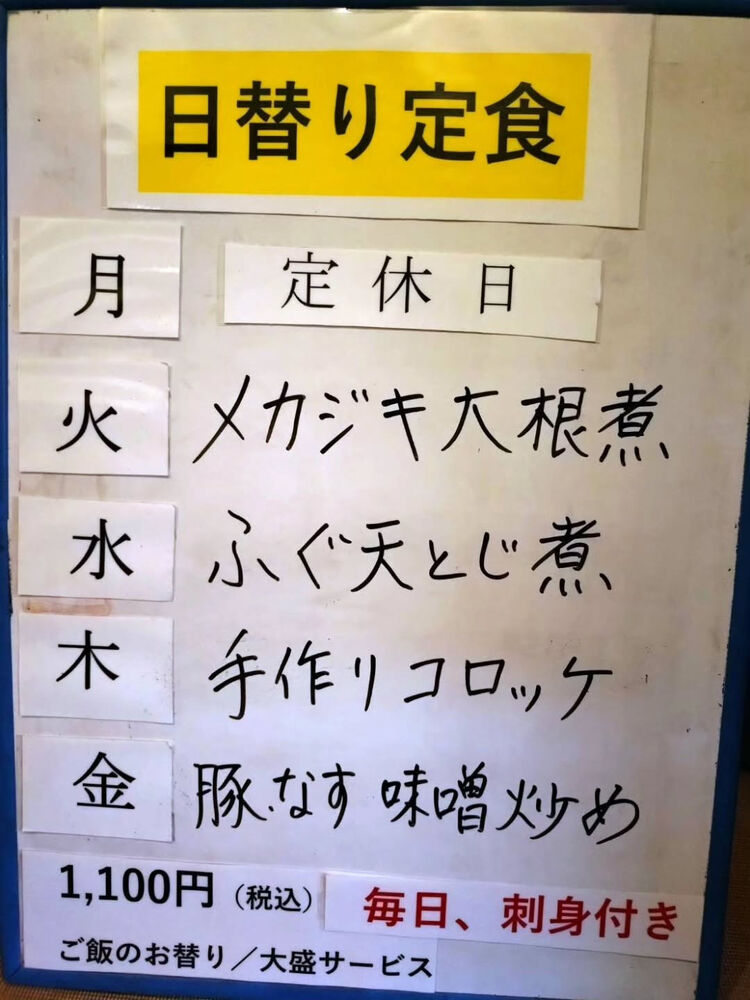 日替り定食
月 定休日
火 メカジキ大根煮
水 ふぐ天とじ煮
木 手作りコロッケ
金 豚、なす味噌炒め
1,100円（税込） 毎日、刺身付き
ご飯のお替り／大盛サービス